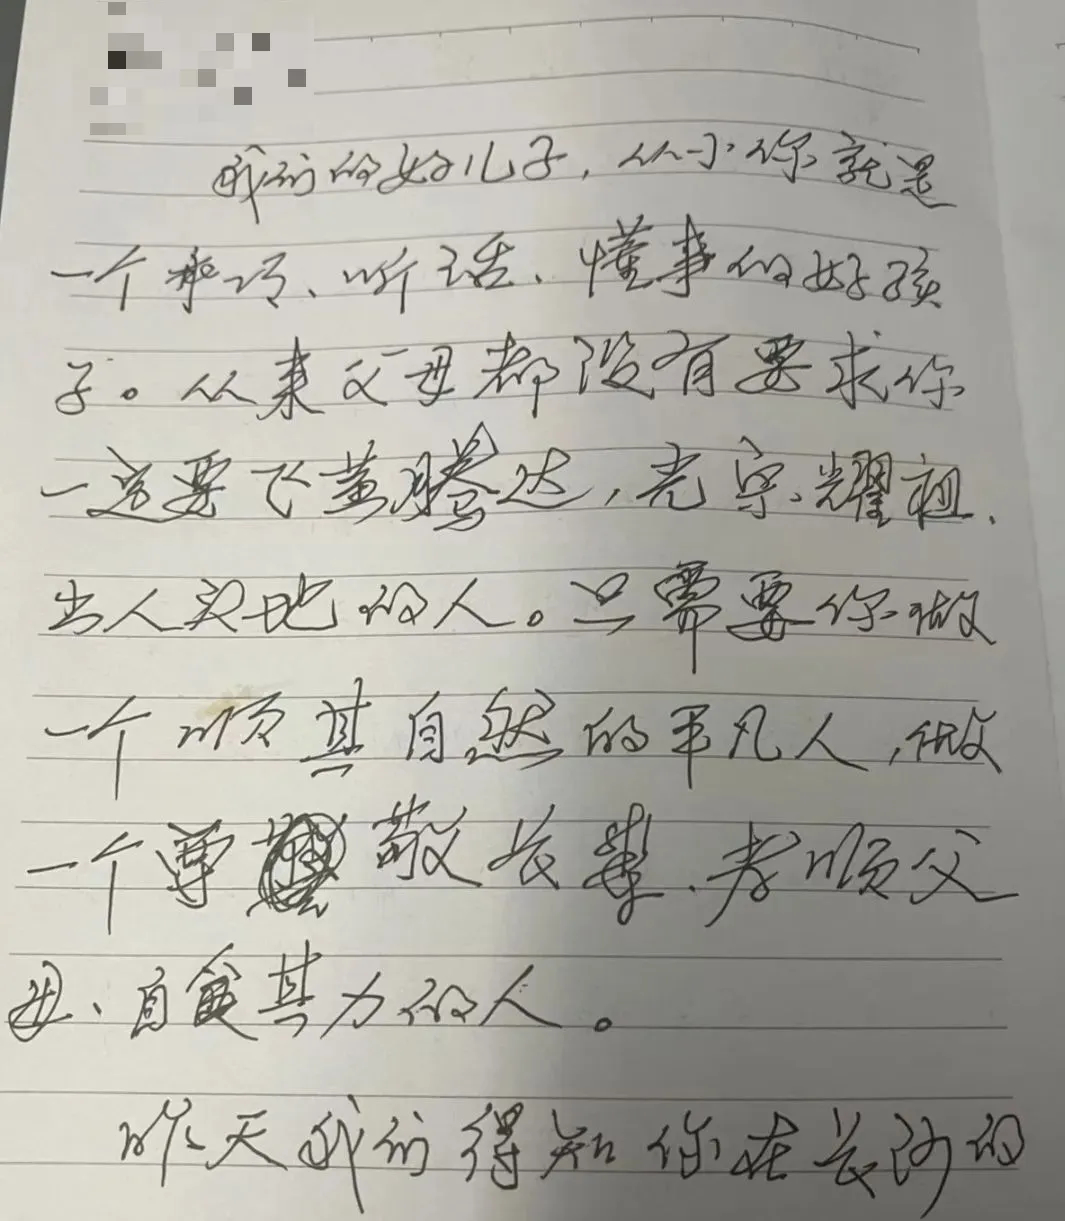 我们的好儿子，从小你就是
一个乖巧、听话、懂事的好孩
子。从来父母都没有要求你
一定要飞黄腾达，光宗耀祖、
出人头地的人。只需要你做
一个顺其自然的平凡人，做
一个尊敬长辈、孝顺父
母、自食其力的人。
昨天我们得知你在长沙的